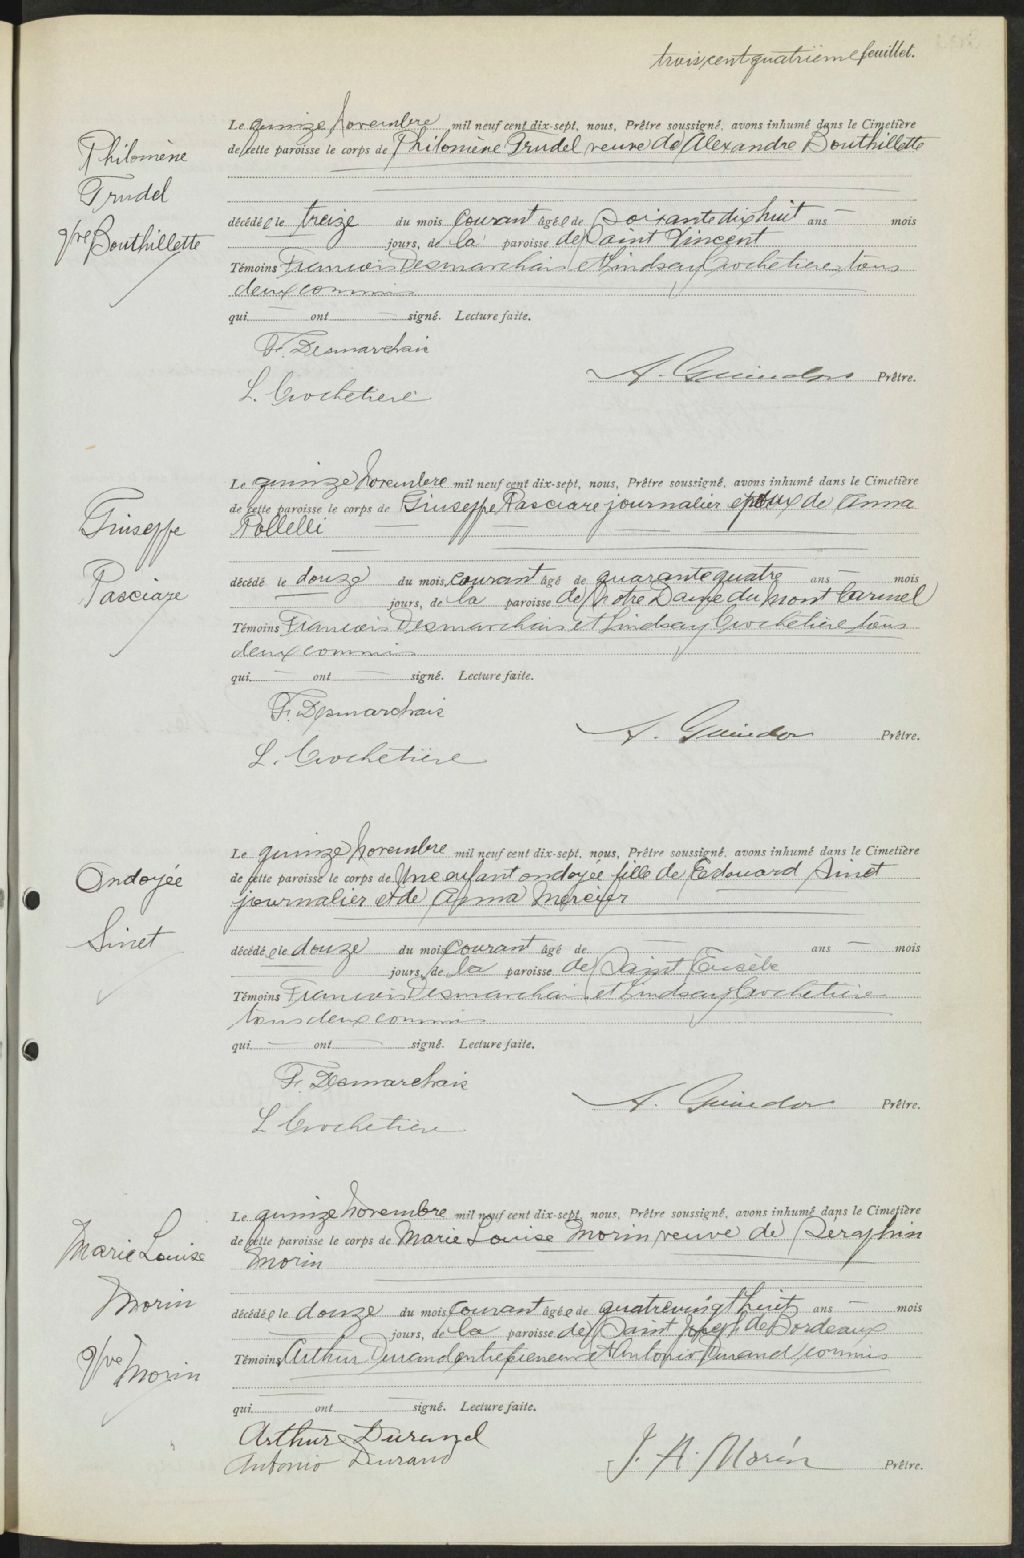 trois cent quatrième feuillet.
Philomène
Trudel
Vve Bouthillette
Le quinze novembre mil neuf cent dix-sept, nous, Prêtre soussigné, avons inhumé dans le Cimetière
de cette paroisse le corps de Philomène Trudel veuve de Alexandre Bouthillette
décédée le treize du mois courant âgée de soixante dix huit ans — mois
jours, de la paroisse de Saint Vincent
Témoins François Desmarchais et Lindsay Crochetiere tous
deux commis
qui — ont — signé. Lecture faite.
F. Desmarchais
L. Crochetiere
A. Guindon Prêtre.
Giuseppe
Pasciare
Le quinze novembre mil neuf cent dix-sept, nous, Prêtre soussigné, avons inhumé dans le Cimetière
de cette paroisse le corps de Giuseppe Pasciare journalier époux de Anna
Pollelli
décédé le douze du mois courant âgé de quarante quatre ans — mois
jours, de la paroisse de Notre Dame du Mont Carmel
Témoins François Desmarchais et Lindsay Crochetière tous
deux commis
qui — ont — signé. Lecture faite.
F. Desmarchais
L. Crochetière
A. Guindon Prêtre.
Ondoyée
Sinet
Le quinze novembre mil neuf cent dix-sept, nous, Prêtre soussigné, avons inhumé dans le Cimetière
de cette paroisse le corps de Une enfant ondoyée fille de Edouard Sinet
journalier et de Anna Mercier
décédée le douze du mois courant âgé de — ans — mois
jours, de la paroisse de Saint Eusèbe
Témoins François Desmarchais et Lindsay Crochetière
tous deux commis
qui — ont — signé. Lecture faite.
F. Desmarchais
L Crochetière
A. Guindon Prêtre.
Marie Louise
Morin
Vve Morin
Le quinze novembre mil neuf cent dix-sept, nous, Prêtre soussigné, avons inhumé dans le Cimetière
de cette paroisse le corps de Marie Louise Morin veuve de Séraphin
Morin
décédée le douze du mois courant âgée de quatrevingt huit ans — mois
jours, de la paroisse de Saint Joseph de Bordeaux
Témoins Arthur Durand entrepreneur et Antonio Durand commis
qui — ont — signé. Lecture faite.
Arthur Durand
Antonio Durand
J. A. Morin Prêtre.